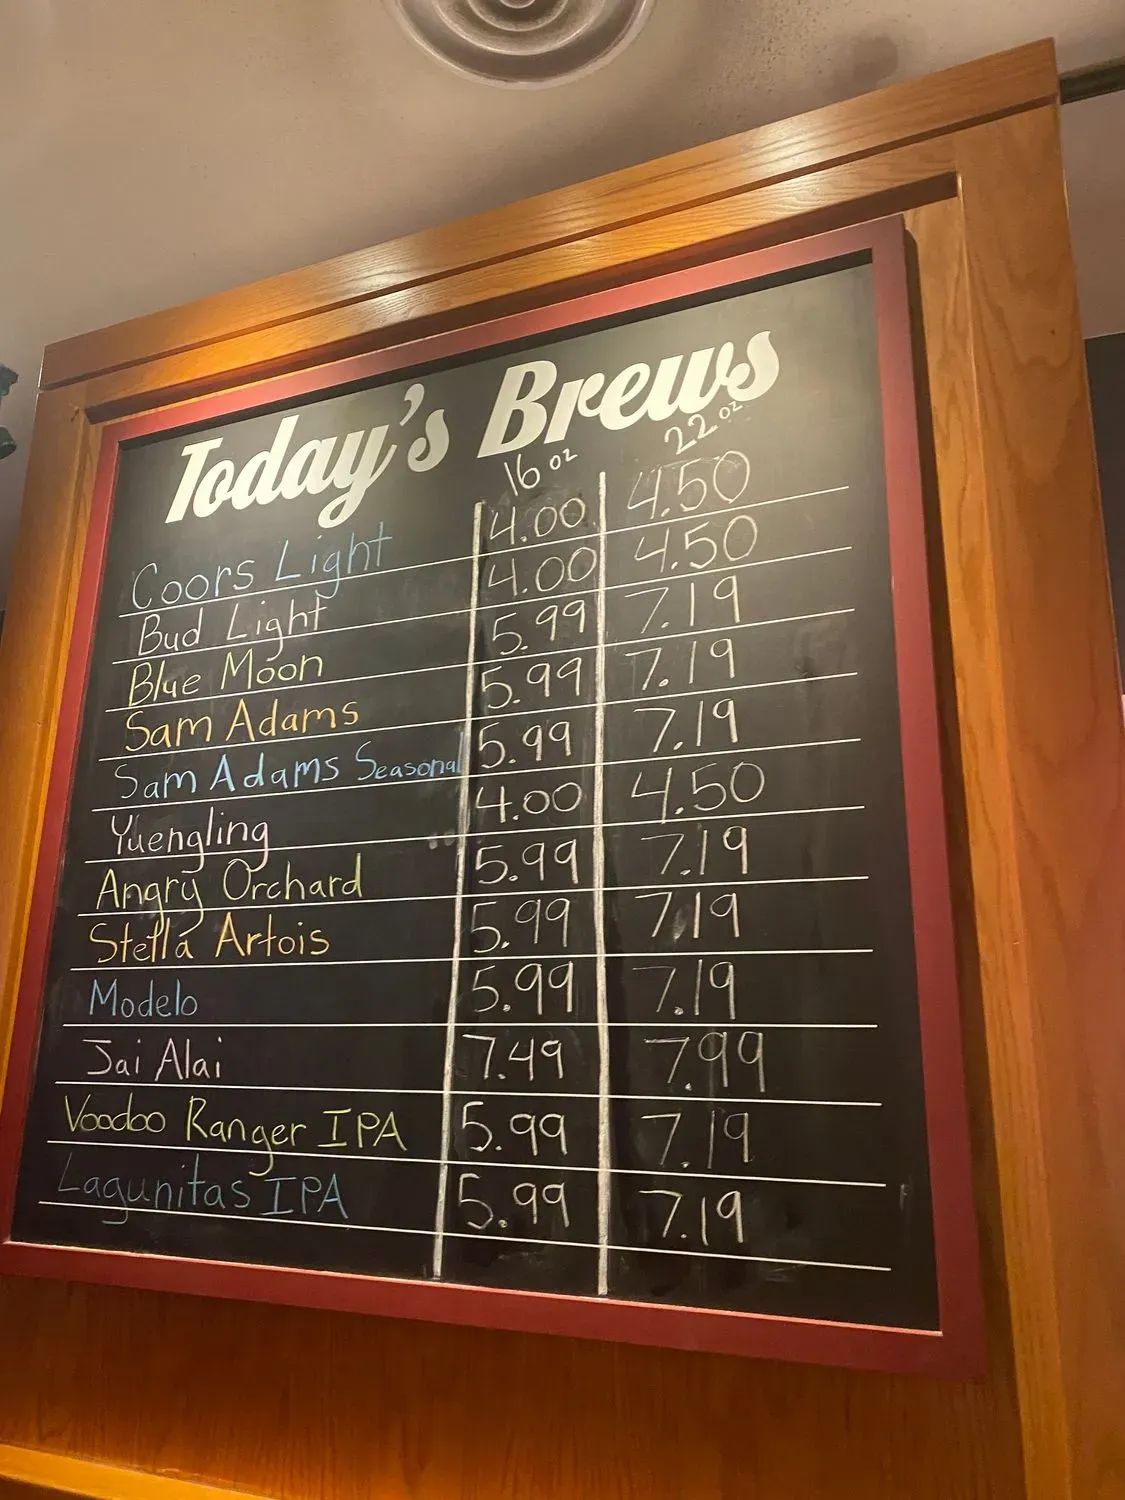 Today's Brews
16 oz 22 oz
Coors Light 4.00 4.50
Bud Light 4.00 4.50
Blue Moon 5.99 7.19
Sam Adams 5.99 7.19
Sam Adams Seasonal 5.99 7.19
Yuengling 4.00 4.50
Angry Orchard 5.99 7.19
Stella Artois 5.99 7.19
Modelo 5.99 7.19
Jai Alai 7.49 7.99
Voodoo Ranger IPA 5.99 7.19
Lagunitas IPA 5.99 7.19